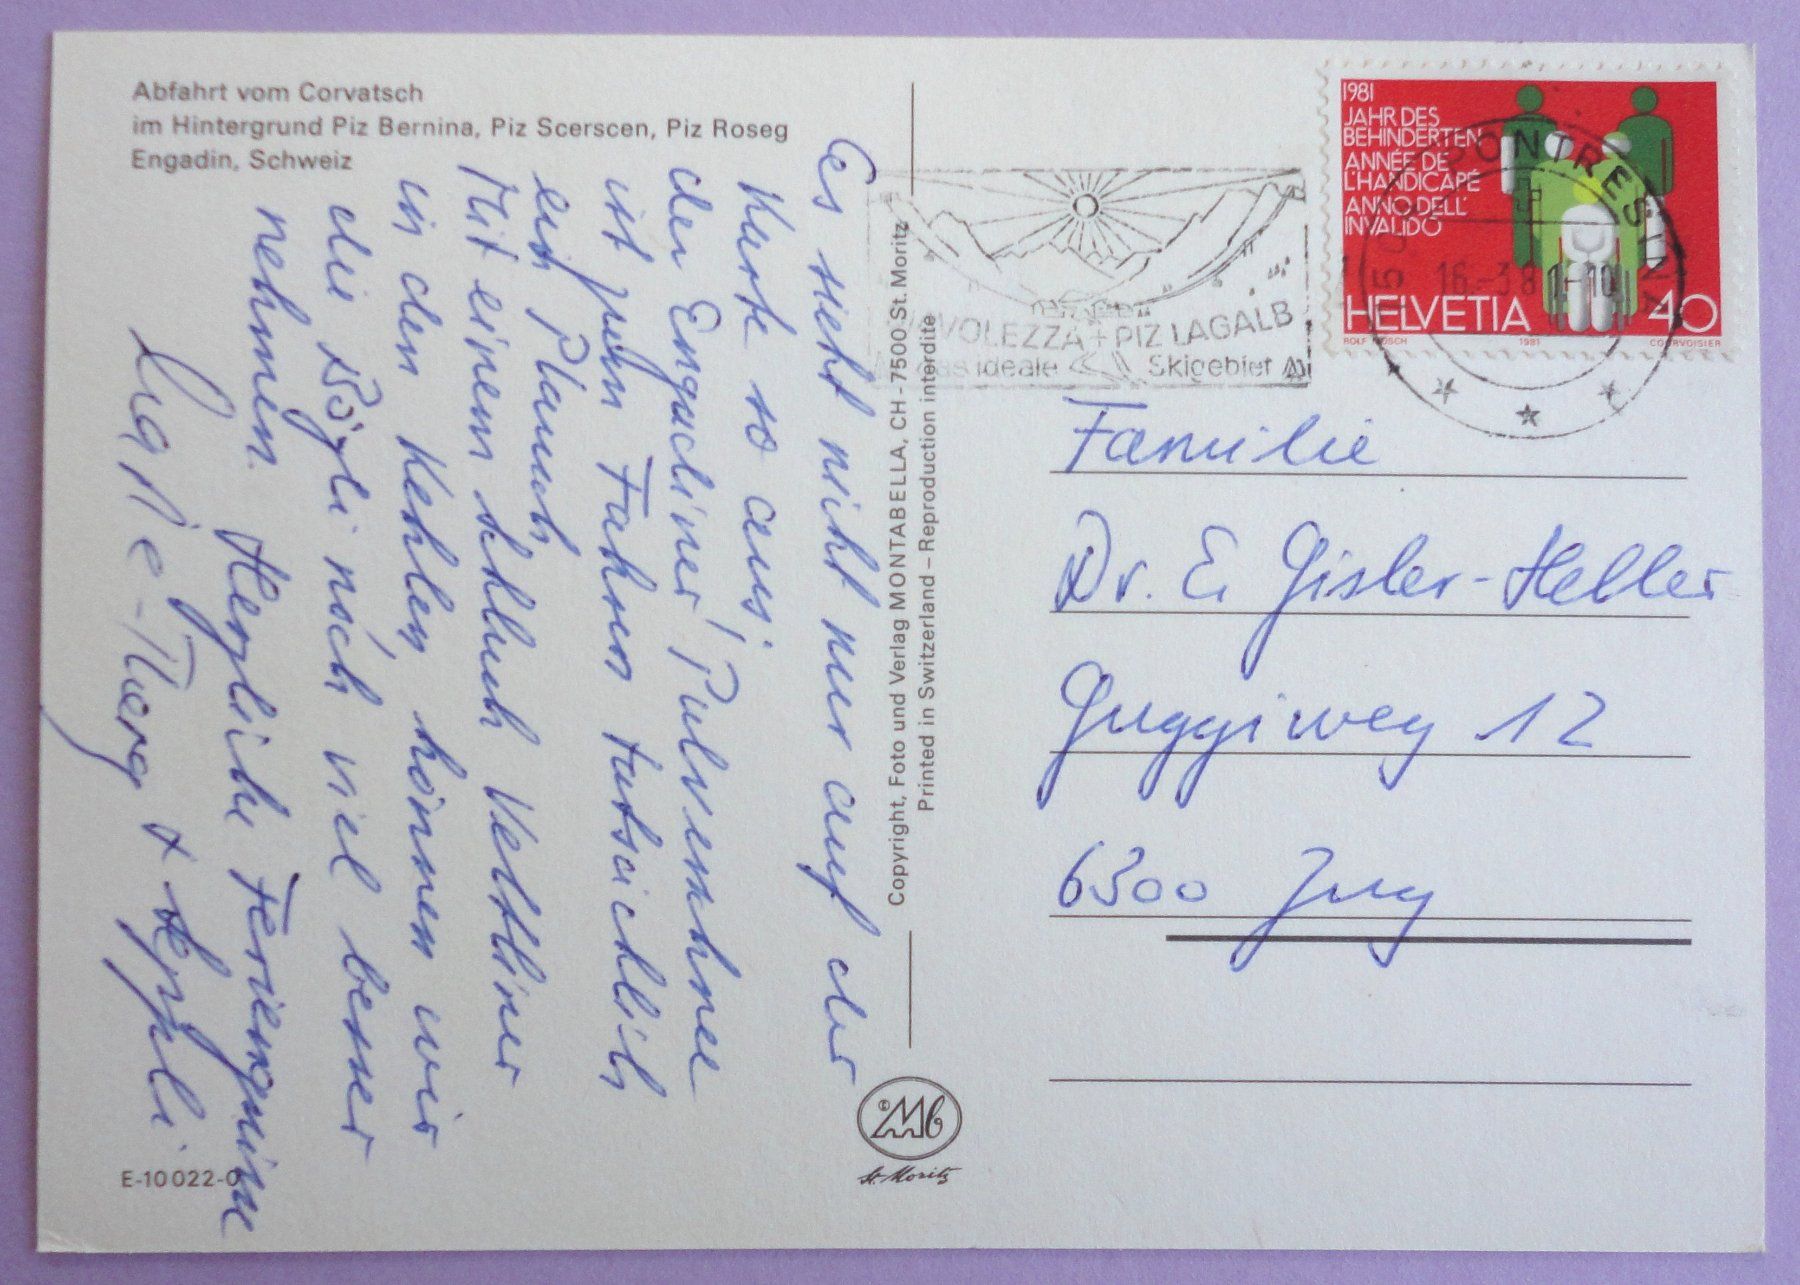 Abfahrt vom Corvatsch
im Hintergrund Piz Bernina, Piz Scerscen, Piz Roseg
Engadin, Schweiz
Es sieht nicht nur auf der
Karte so aus;
der Engadiner Pulverschnee
ist zum Fahren tatsächlich
ein Plausch
Mit einem Schluck Veltliner
in den Kehlen, können wir
die Bögli noch viel besser
nehmen. Herzliche Feriengrüsse
Copyright, Foto und Verlag MONTABELLA, CH - 7500 St. Moritz
Printed in Switzerland – Reproduction interdite
1981
JAHR DES
BEHINDERTEN
ANNÉE DE
L'HANDICAPÉ
ANNO DELL'
INVALIDO
HELVETIA 40
ROLF 1981 COURVOISIER
PONTRESINA
16.-3.8
PIZ LAGALB
das ideale Skigebiet
Familie
Dr. E. Gisler-Heller
Guggiweg 12
6300 Zug
© Mb
St. Moritz
E-10 022-0